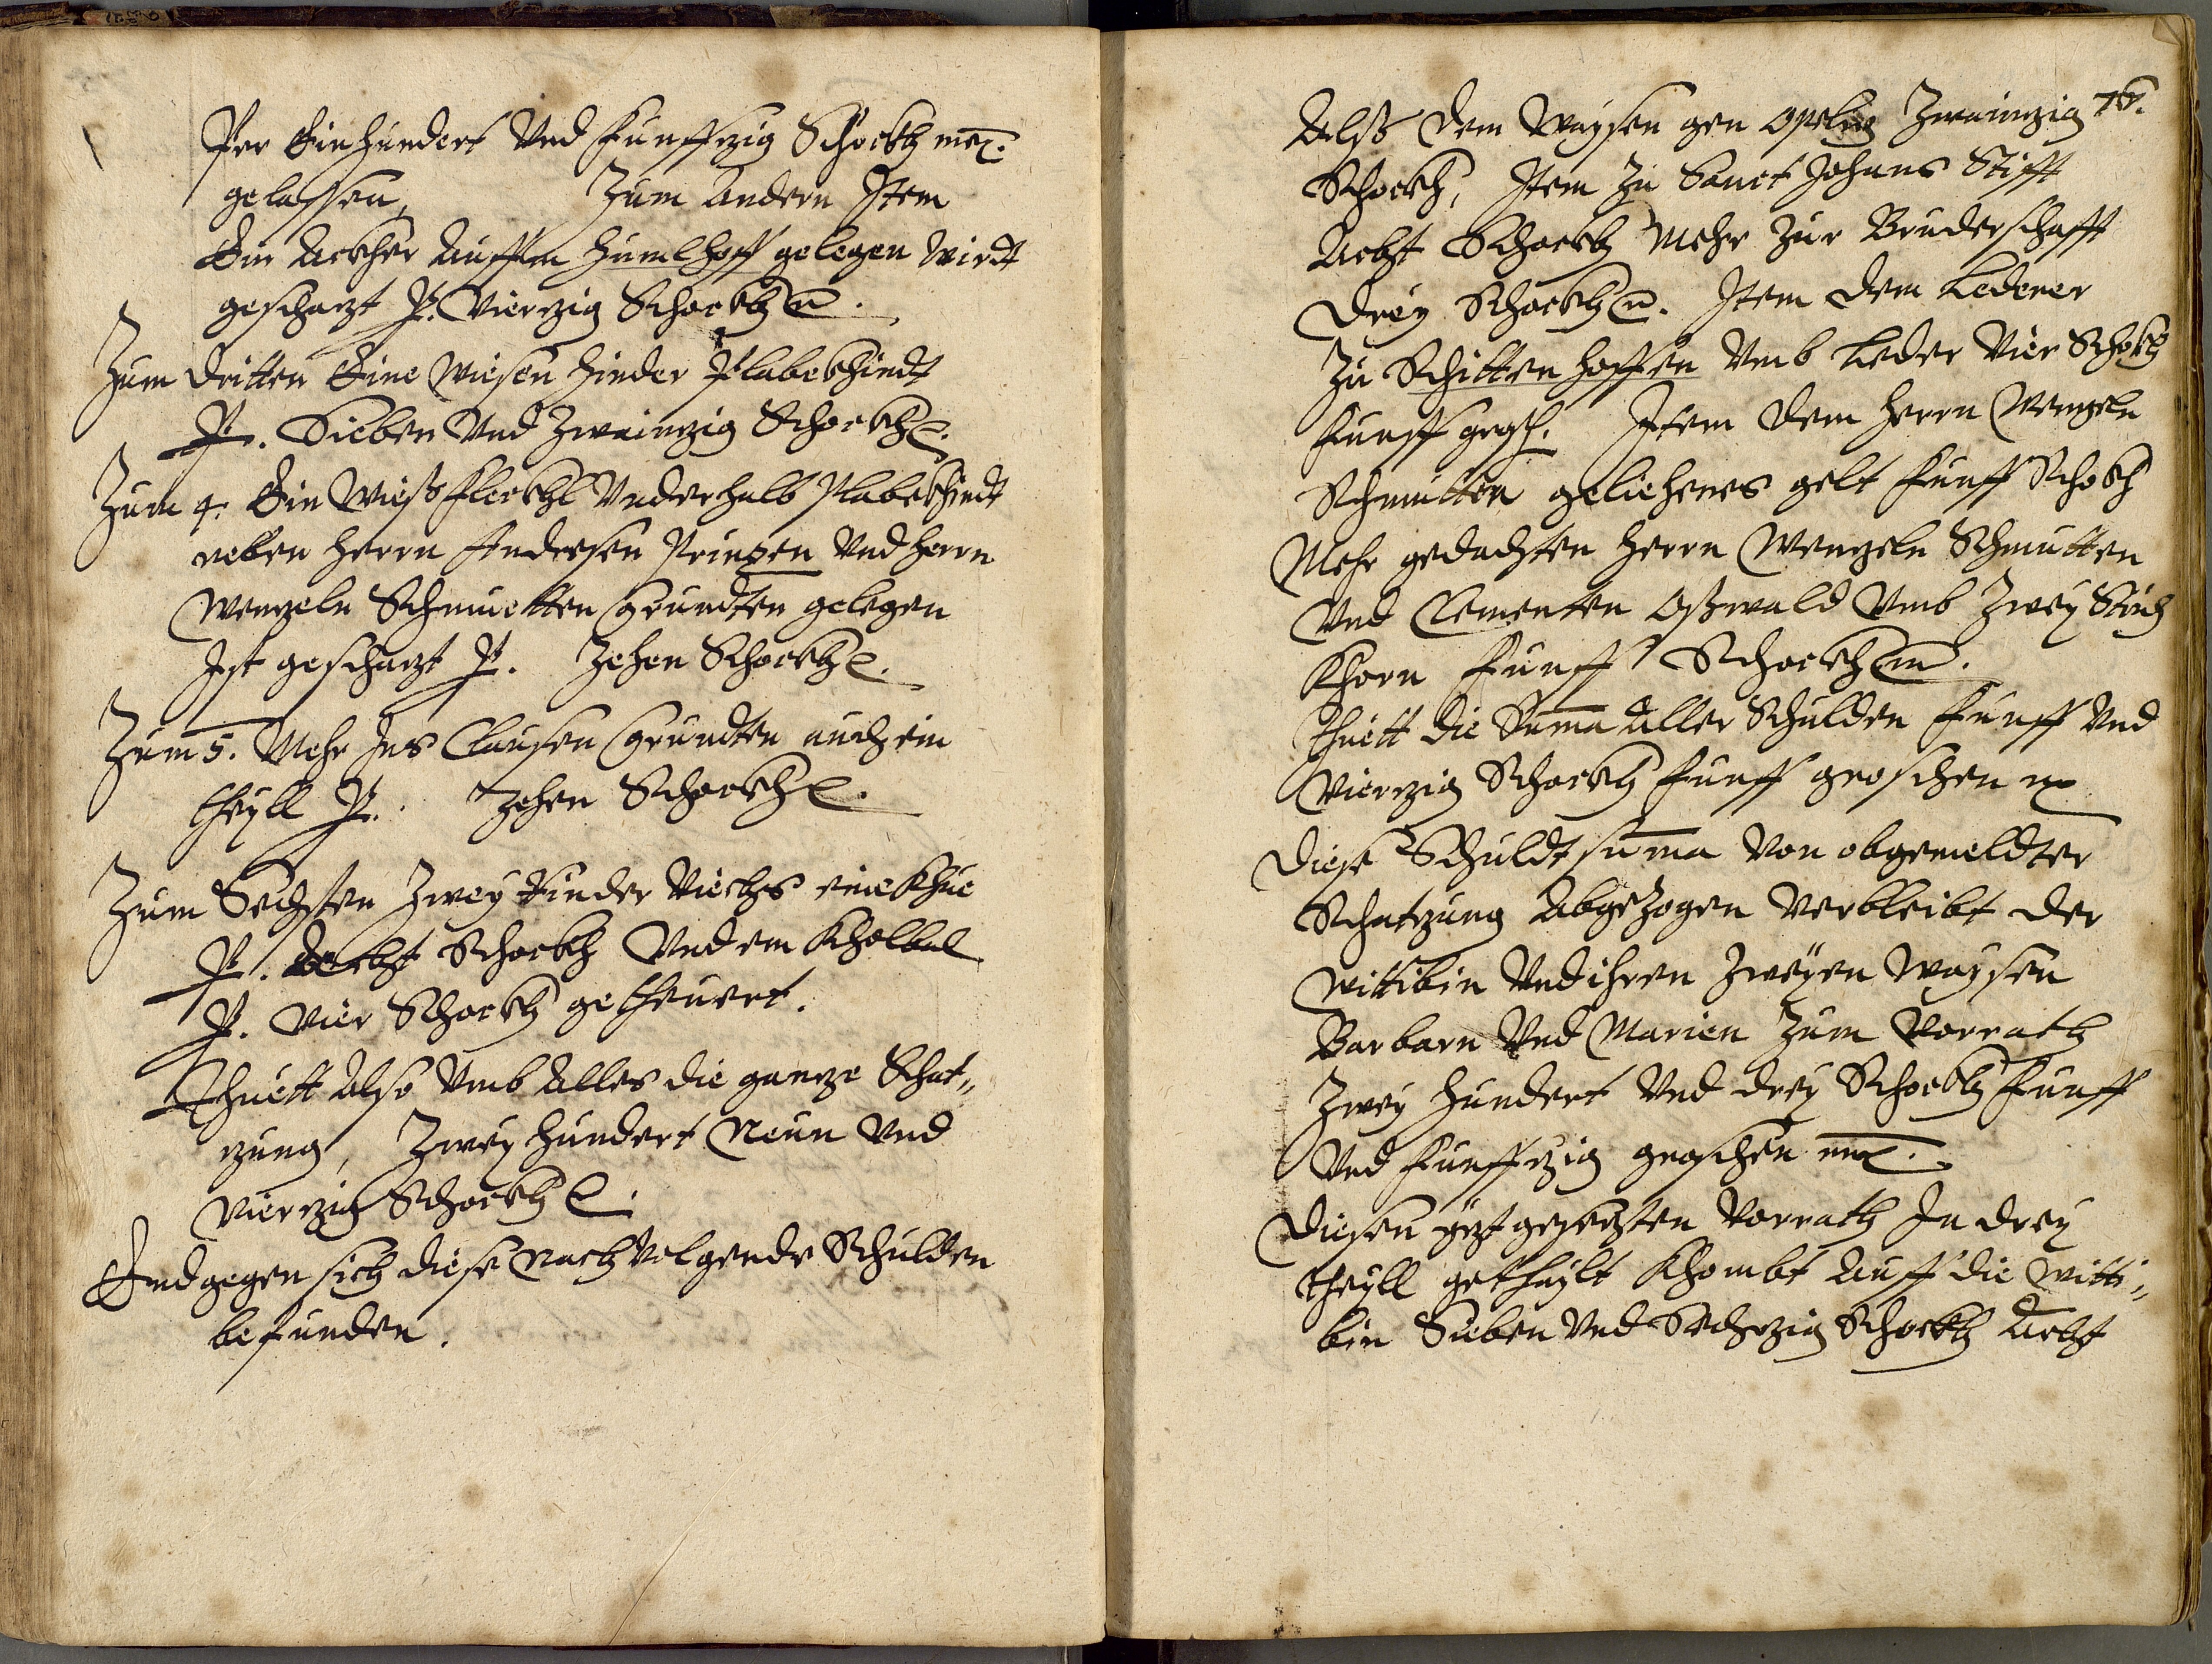 Per Ein hundert Vnd Funffzig Schockh meꝭ.
gelassen, Zum Andern Item
Ein Ackher Auffm Humlhoff gelegen wirdt
geschazt P. Vierzig Schockh m.
Zum dritten Eine Wiesen hinder Plabekhindt
P. Sieben Vnd Zwainzig Schockh
Zum 4. Ein Wiess fleckhl Vnderhalb Plabekhindt
neben Herrn Andresen Prinzen Vnd Herrn
Wenzeln Schmuetten Gründten gelegen
Ist geschazt P. Zehen Schockh
Zum 5. Mehr Ins Clausen Gründten auch ein
theyll P. Zehen Schockh
Zum Sechsten Zwey Rinder Viechs eine Khue
P. Acht Schockh Vnd ein Kholbel
P. Vier Schockh getheuert.
Thuett Also Vmb Alles die ganze Schat„
zung, Zwey hundert Neun Vnd
Vierzig Schockh
Endgegen sich diese nachvolgende Schulden
befunden.
76.
Alss dem Waysen gen Opeln Zwainzig
Schockh, Item Zu Sanct Johans Stifft
Acht Schockh Mehr Zur Bruderschafft
Drey Schockh m. Item dem Lederer
Zu Schüttenhoffen Vmb Leder Vier Schokh
Funff grosch. Item dem Herrn Wenzeln
Schmutten geliehenes gelt Funff Schokh
Mehr gedachten Herrn Wenzeln Schmutten
Vnd Clementen Osswald Vmb Zwey Strich
Khorn Funff Schockh m.
Thuett die Suma Aller Schulden Funff Vnd
Vierzig Schockh Funff groschen m
Diese Schuldt suma Von obgemeldter
Schatzung Abgezogen Verbleibt der
Wittibin Vnd ihren Zweyen Waysen
Barbarn Vnd Marien Zum Vorrath
Zwey hundert Vnd drey Schockh Funff
Vnd Funffzig groschen meꝭ.
Diesen yezt gesezten Vorrath In drey
theyll gethaylt Khombt Auff die Witti„
bin Sieben Vnd Sechzig Schockh Acht